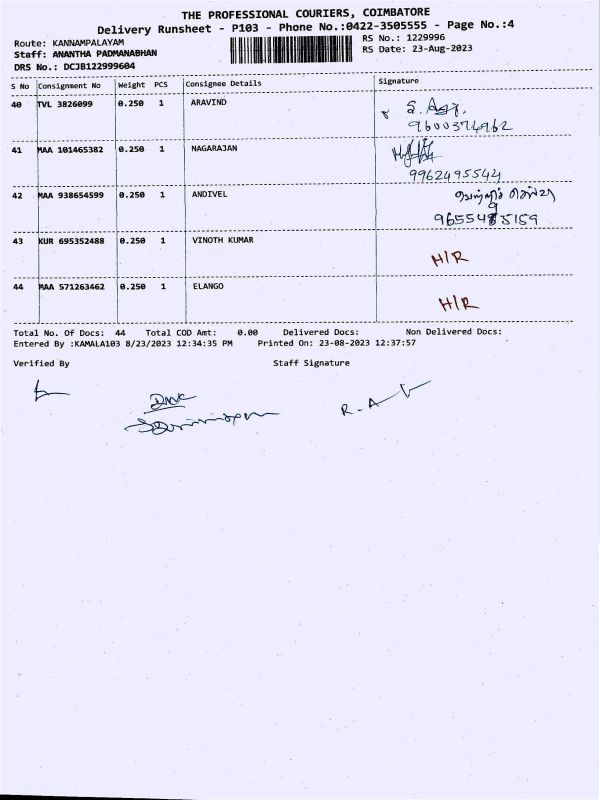 THE PROFESSIONAL COURIERS, COIMBATORE
Delivery Runsheet - P103 - Phone No.:0422-3505555 - Page No.:4
Route: KANNAMPALAYAM RS No.: 1229996
Staff: ANANTHA PADMANABHAN RS Date: 23-Aug-2023
DRS No.: DCJB122999604
S No Consignment No Weight PCS Consignee Details Signature
40 TVL 3826099 0.250 1 ARAVIND
9600374962
41 MAA 101465382 0.250 1 NAGARAJAN
9962495544
42 MAA 938654599 0.250 1 ANDIVEL
43 KUR 695352488 0.250 1 VINOTH KUMAR
H/R
44 MAA 571263462 0.250 1 ELANGO
H/R
Total No. Of Docs: 44 Total COD Amt: 0.00 Delivered Docs: Non Delivered Docs:
Entered By :KAMALA103 8/23/2023 12:34:35 PM Printed On: 23-08-2023 12:37:57
Verified By Staff Signature